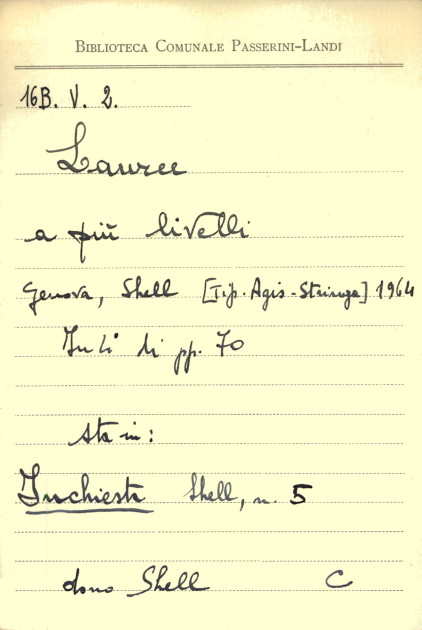 BIBLIOTECA COMUNALE PASSERINI-LANDI
16B. V. 2.
Lauree
a più livelli
Genova, Shell [Tip. Agis-Stringa] 1964
In 4° di pp. 70
sta in:
Inchiesta Shell, n. 5
dono Shell C